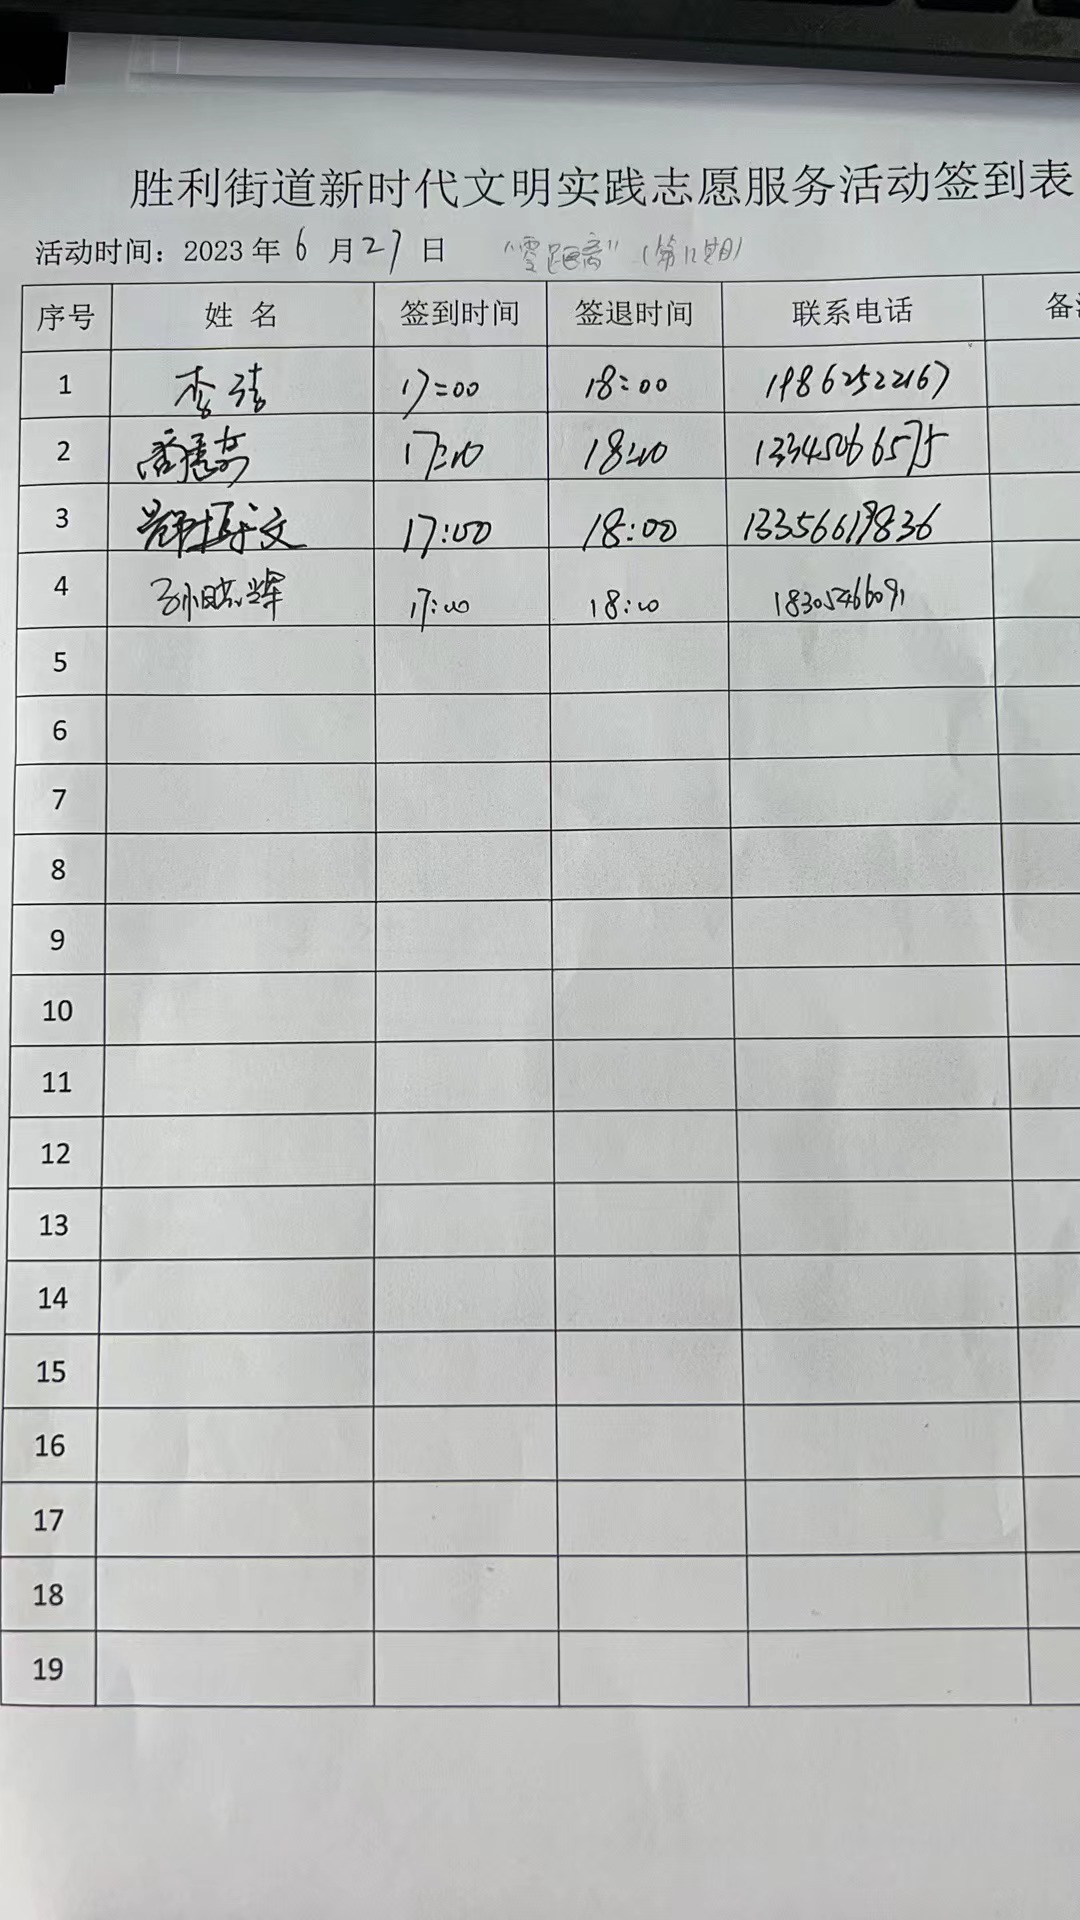 胜利街道新时代文明实践志愿服务活动签到表
活动时间：2023 年 6 月 27 日 "零距离" (第12期)
序号 姓 名 签到时间 签退时间 联系电话 备
1 李洁 17:00 18:00 19862522167
2 17:00 18:00 13345066575
3 文 17:00 18:00 13356619836
4 孙晓辉 17:00 18:00 18305466091
5
6
7
8
9
10
11
12
13
14
15
16
17
18
19